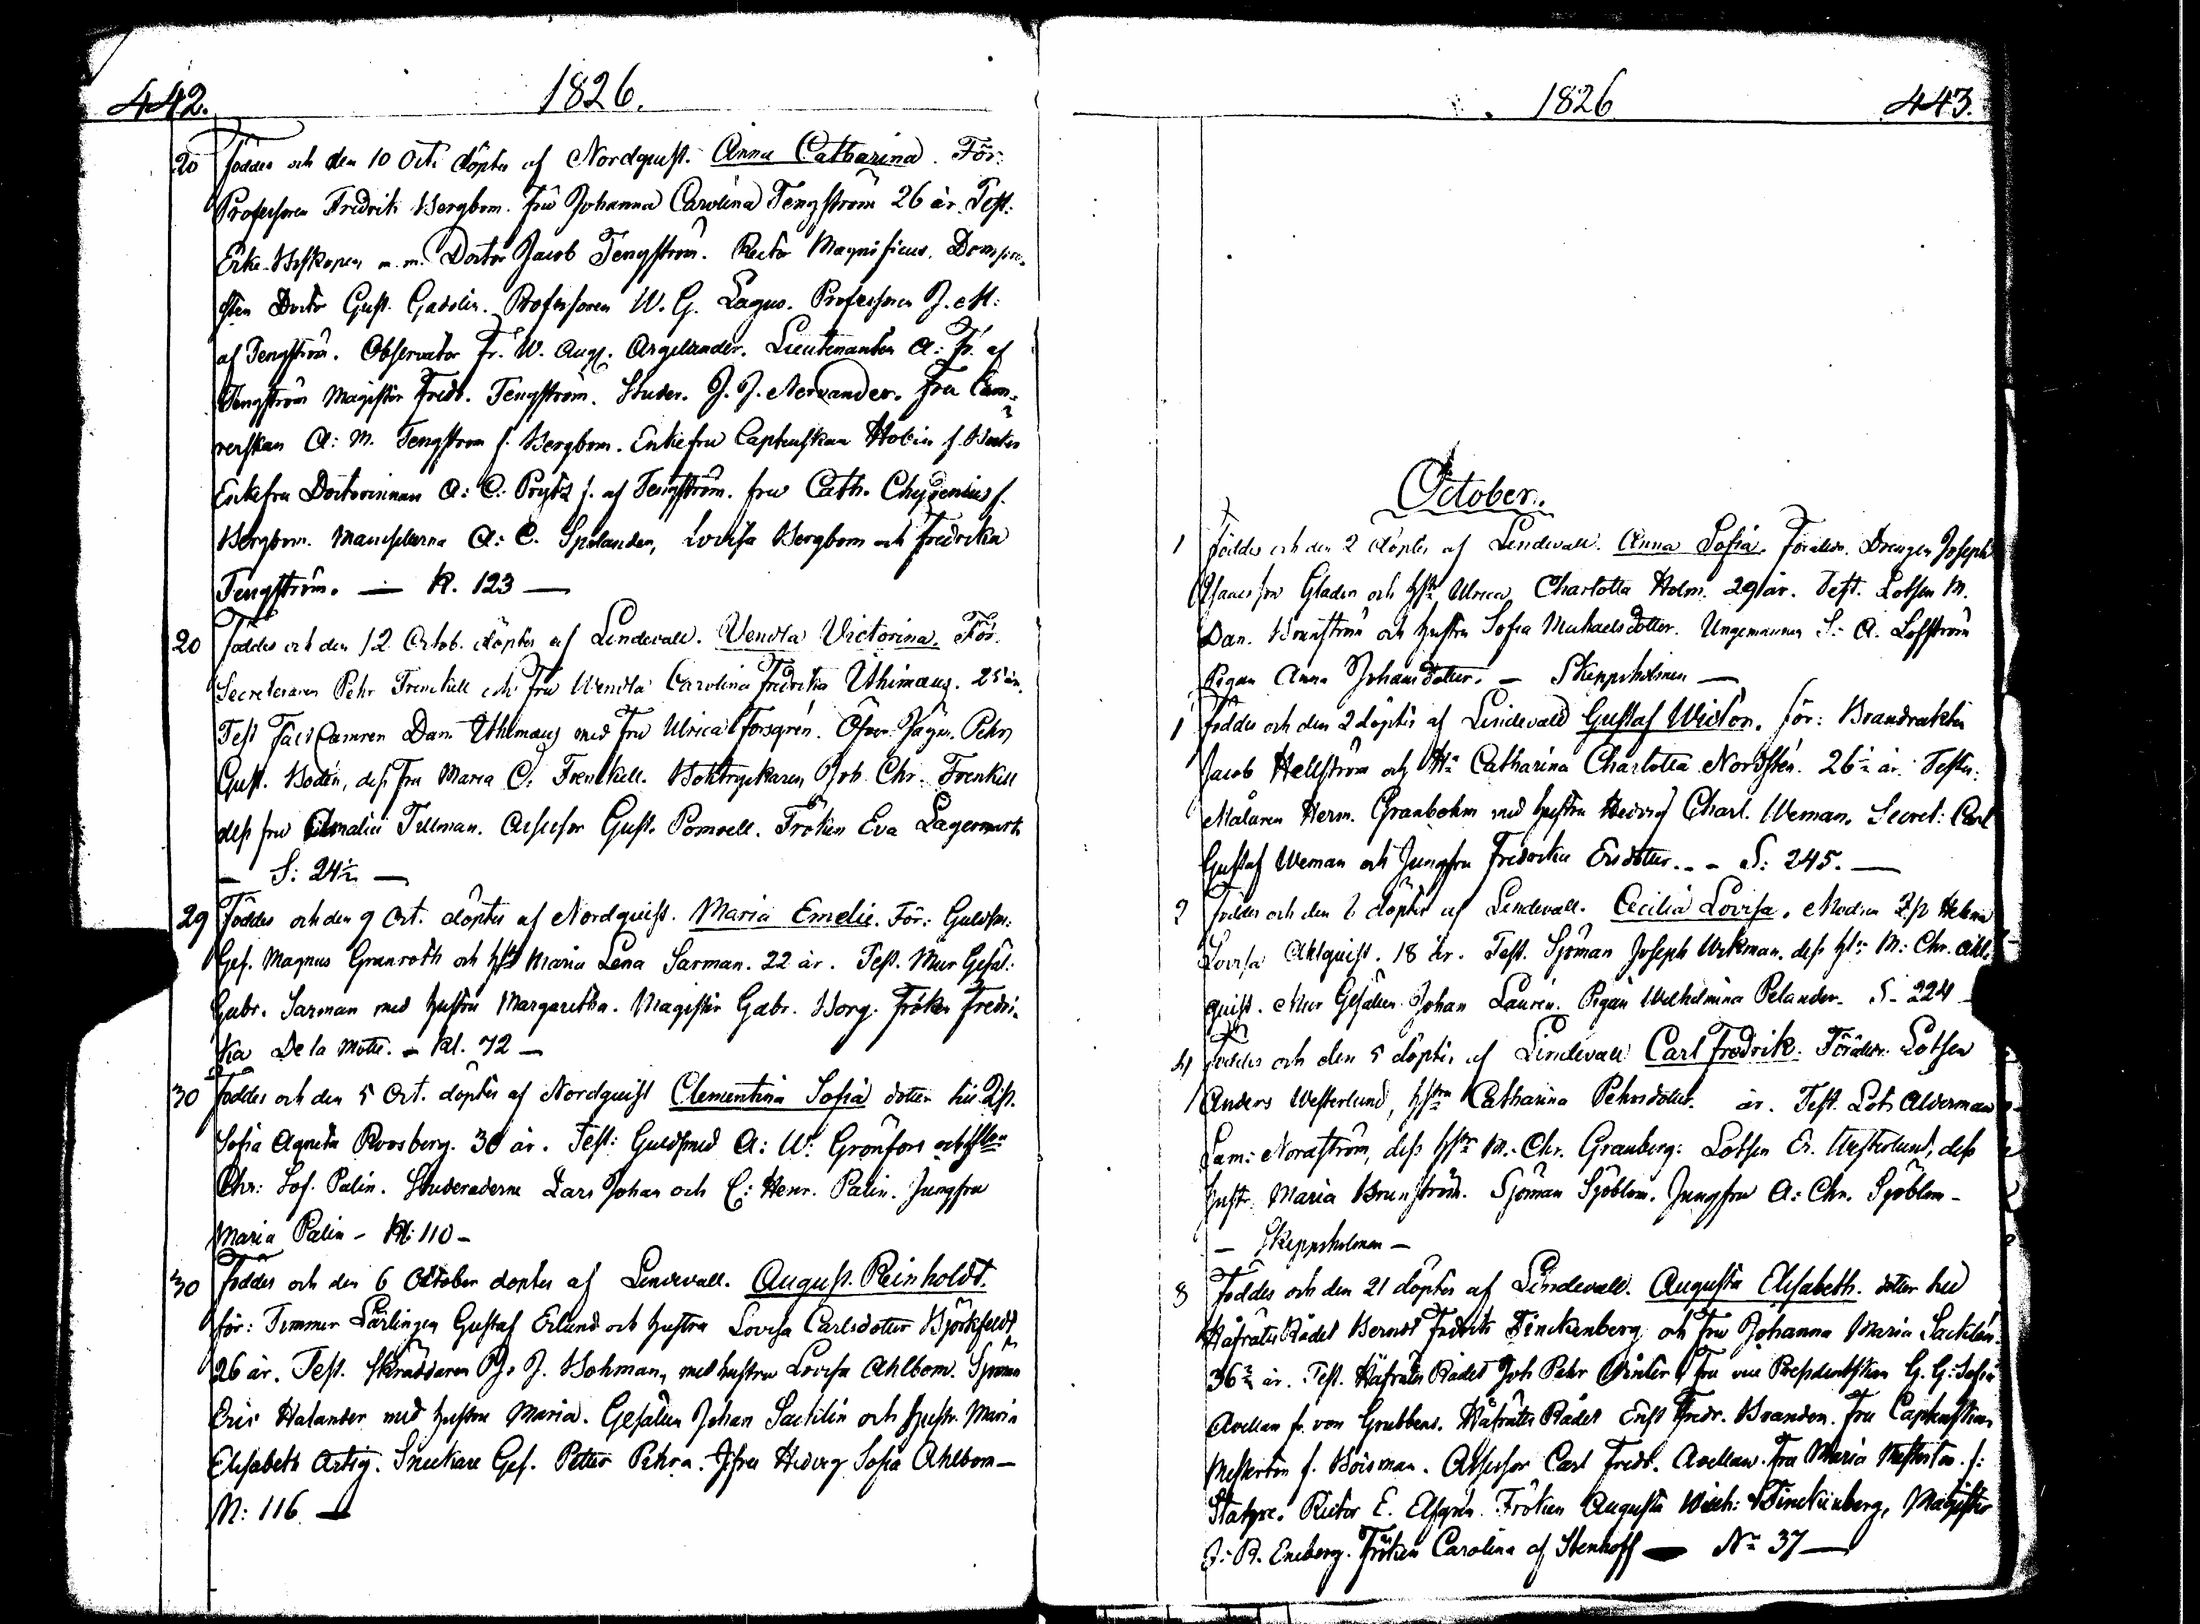 442.
1826.
20 Föddes och den 10 Oct: döptes af Nordquist. Anna Catharina. För:
Professoren Fredrik Bergbom. Fru Johanna Carolina Tengström 26 år. Test:
Erke-Biskopen m.m. Doctor Jacob Tengström. Rector Magnificus, Dompro-
sten Doctor Gust. Gadolin. Professoren W. G. Lagus. Professoren J. M:
af Tengström. Observator Fr. W. Aug. Argelander. Lieutenanten A: Fr. af
Tengström Magister Fredr. Tengström. Studer. J. J. Nervander. Fru Cam-
rerskan A: M. Tengström f. Bergbom. Enkefru Captenskan Hobin f.
Enkefru Doctorinnan A: C: Prytz f. af Tengström. fru Cath. Chydenius f.
Bergbom. Mamsellerna A: C. Spolander, Lovisa Bergbom och Fredrika
Tengström. — K. 123 —
20 Föddes och den 12 Octob. döptes af Lindevall. Vendla Victorina. För.
Secreteraren Pehr Frenckell och fru Wendla Carolina Fredrika Uthmanz. 25 år.
Test Camren Dan Uthmanz med fru Ulrica Forsgrén. Öfver Jägm. Pehr
Gust. Bodén, dess fru Maria C: Frenckell. Boktryckaren Joh. Chr. Frenkell
dess fru Amalia Tillman. Assessor Gust. Pomoell. Fröken Eva Lagermark
— S: 24½ —
29 Föddes och den 9 Oct. döptes af Nordquist. Maria Emelie. För: Guldsm:
Ges. Magnus Granroth och hstr Maria Lena Sarman. 22 år. Test. Mur Gesäl.
Gabr. Sarman med hustru Margaretha. Magister Gabr. Borg. Fröken Fredri-
ka De la Motte. — Kl. 72 —
30 Föddes och den 5 Oct. döptes af Nordquist Clementina Sofia dotter till
Sofia Agneta Roosberg. 30 år. Test: Guldsmed A: W: Grönfors och
Chr: Sof. Palin. Studeraderne Lars Johan och C: Henr. Palin. Jungfru
Maria Palin — Kl: 110 —
30 Föddes och den 6 October döptes af Lindevall. August Reinholdt.
för: Timmer Lärlingen Gustaf Erlund och hustru Lovisa Carlsdotter Björkfeldt
26 år. Test. Skräddaren J. Bohman, med hustru Lovisa Ahlbom. Sjöman
Eric Halander med hustru Maria. Gesällen Johan Sacklin och hustr. Maria
Elisabeth Artig. Snickare Ges. Petter Pehrn. Jfru Hedvig Sofia Ahlbom —
N: 116 —
1826
443.
October.
1 Föddes och den 2 döptes af Lindevall. Anna Sofia. Föräldr. Drengen Joseph
Isaacsson Gladen och hstr Ulrica Charlotta Holm. 29 år. Test. Lotsen M.
Dan. Brunström och hustru Sofia Michaelsdotter. Ungemannen S: A. Löfström
Pigan Anna Johansdotter. — Skeppsholmen —
1 Föddes och den 2 döptes af Lindevall Gustaf Victor. för: Brandvakten
Jacob Hellström och Hu Catharina Charlotta Nordstén. 26 ½ år. Testes:
Målaren Herm. Granbohm med hustru Hedvig Charl. Weman. Secret: Carl
Gustaf Weman och Jungfru Fredrika Ersdotter. — S: 245. —
2 Föddes och den 6 döptes af Lindevall. Cecilia Lovisa. Modren Helena
Lovisa Ahlquist. 18 år. Test. Sjöman Joseph Wikman. dess M: Chr. Ahl-
quist. Mur Gesällen Johan Laurén. Pigan Wilhelmina Pelander. S. 224 —
4 Föddes och den 5 döptes af Lindevall Carl Fredrik. Föräldr: Lotsen
Anders Westerlund, hstru Catharina Pehrsdotter. år. Test. Lots Alderman
Sam: Nordström, dess hstr M: Chr. Granberg: Lotsen Er. Westerlund, dess
hustr. Maria Brunström. Sjöman Sjöblom. Jungfru A: Chr. Sjöblom —
— Skeppsholmen —
8 Föddes och den 21 döptes af Lindevall. Augusta Elisabeth. dotter till
Håfrätts Rådet Berndt Fredrik Finckenberg och fru Johanna Maria Sacklén.
36 ½ år. Test. Håfrätts Rådet Joh Pehr Winter Fru vice Presidentskan G. G: Sofia
Avellan f. von Grubbens. Håfrätts Rådet Ernst Fredr. Brander. Fru Captenskan
Mesterton f. Boisman. Assessor Carl Fredr. Avellan. Fru Maria Mesterton f:
Rector E. Elfgrén. Fröken Augusta Wilh: Finckenberg, Magister
J. R. Eneberg. Fröken Carolina af Stenhoff — No 37 —